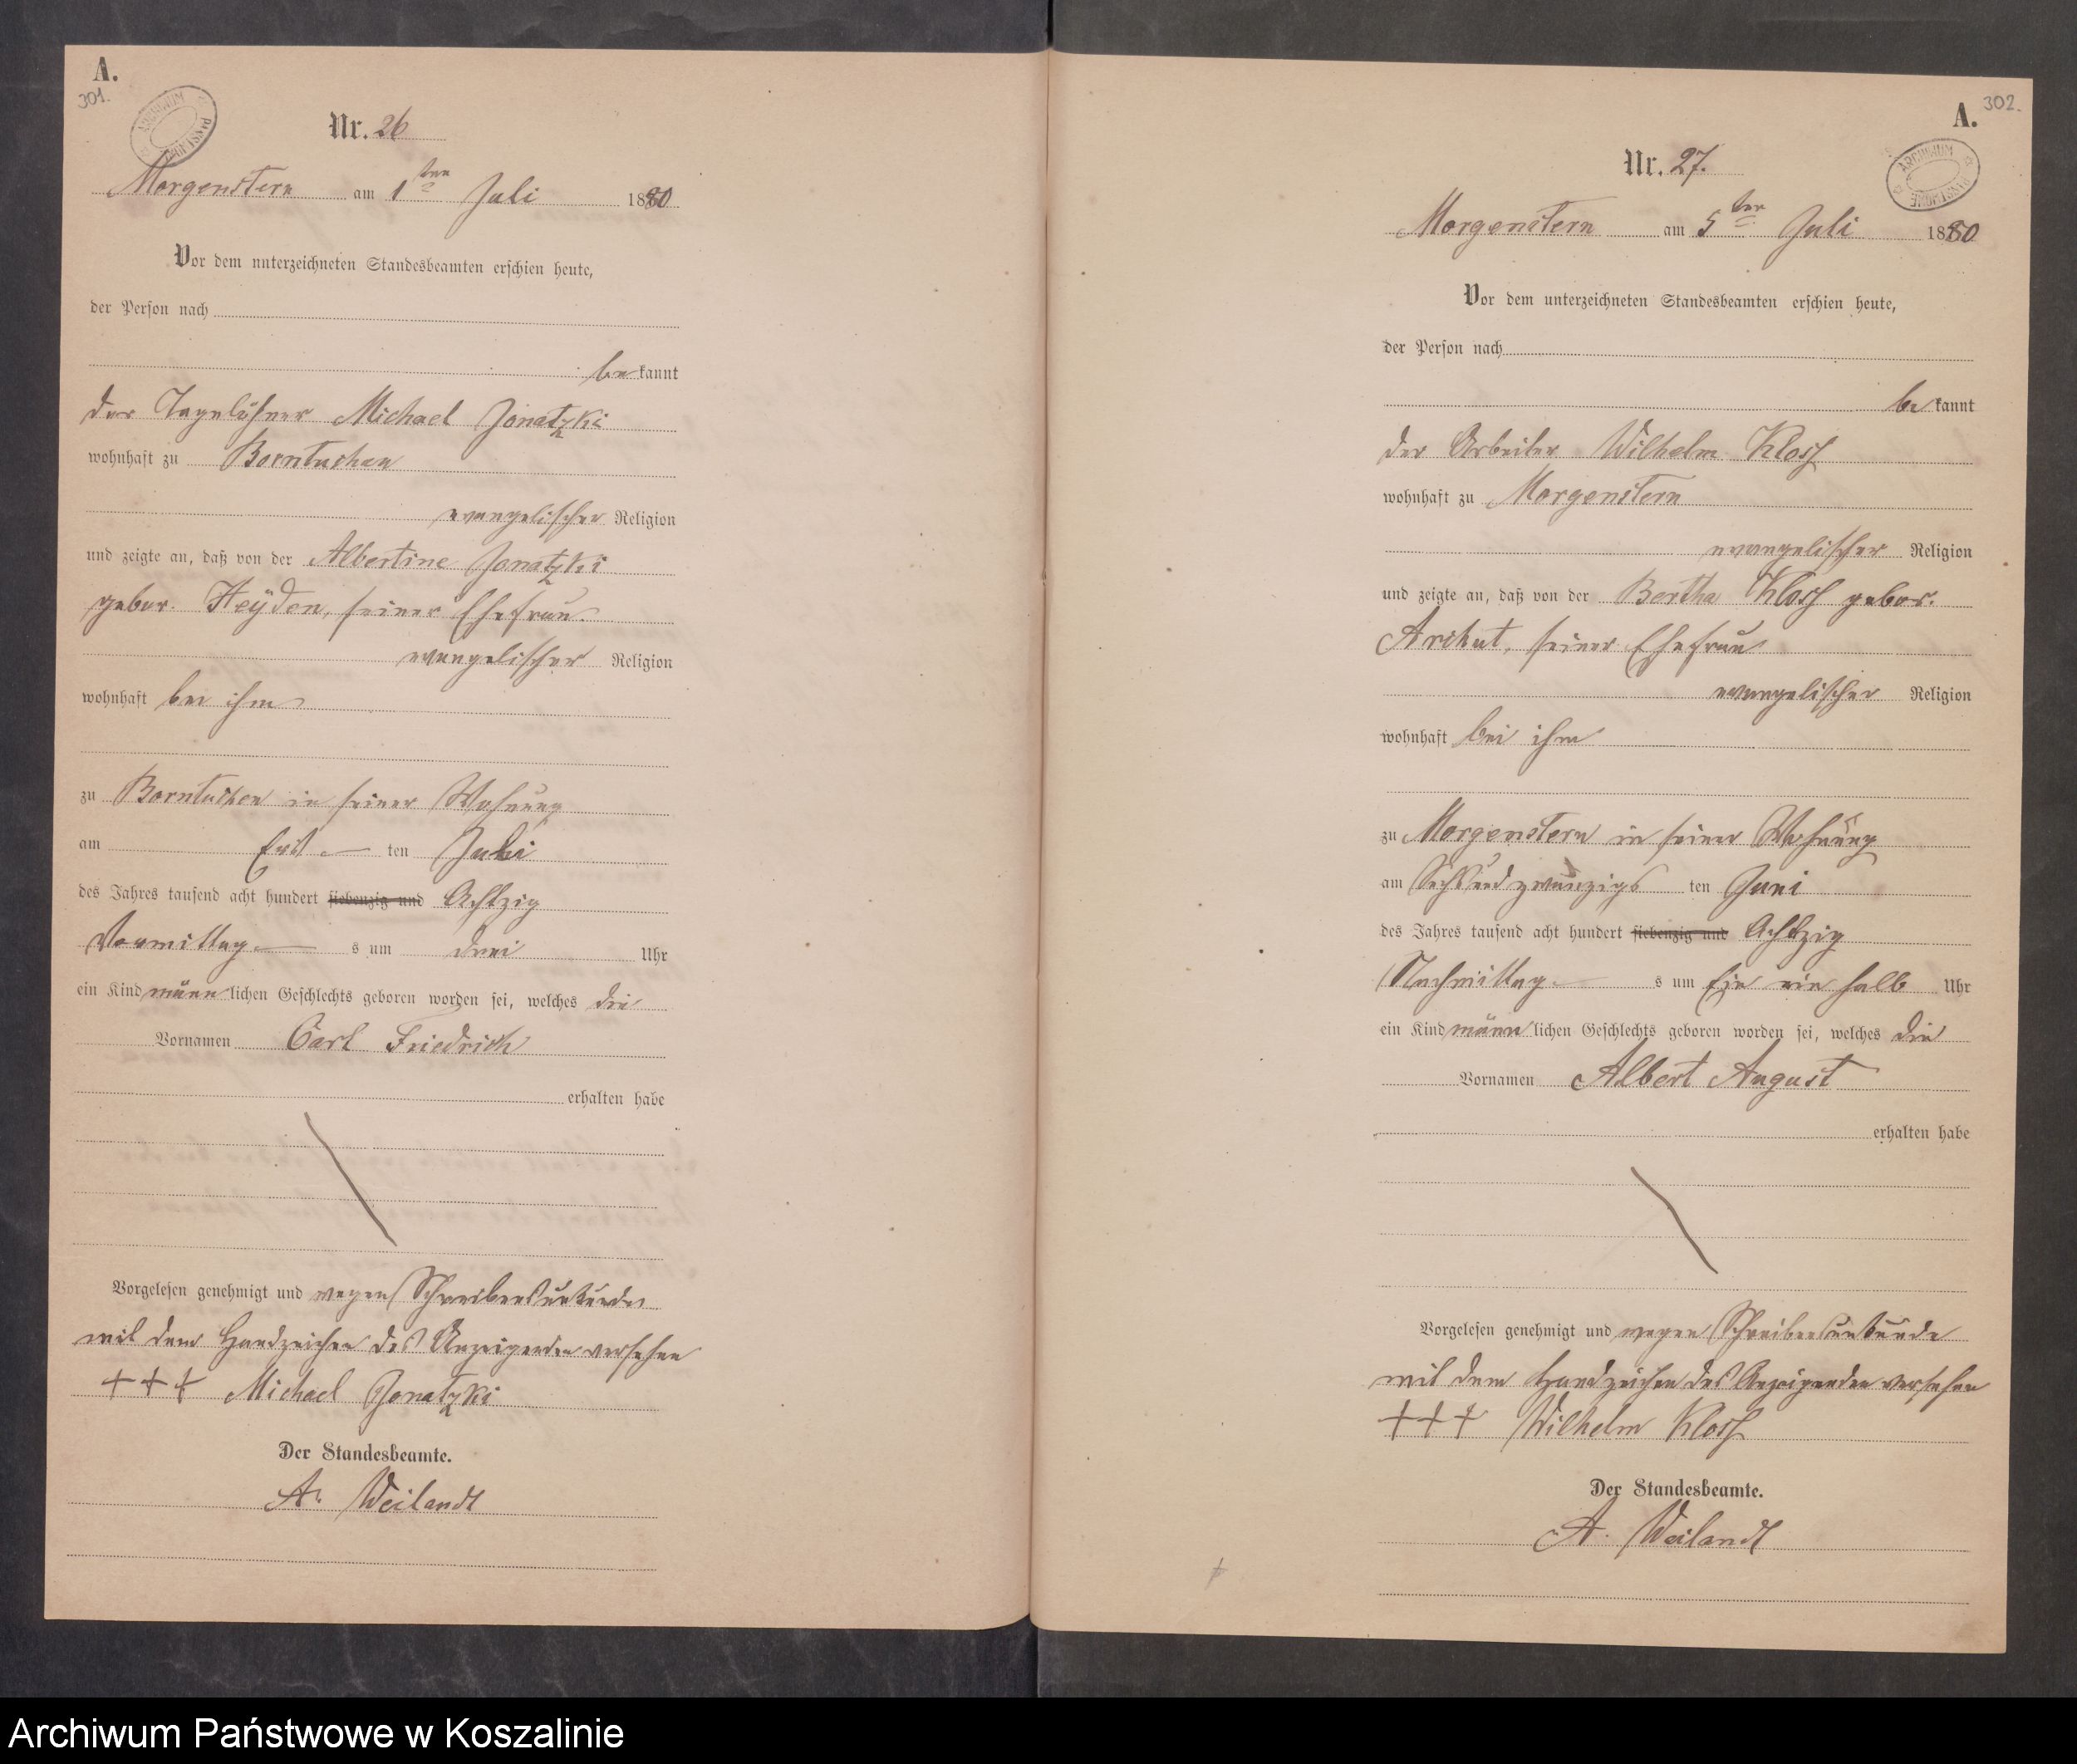 A.
301.
ARCHIWUM PAŃSTWOWE
Nr. 26
Morgenstern am 1ten Juli 1880
Vor dem unterzeichneten Standesbeamten erschien heute,
der Person nach
be kannt
der Tagelöhner Michael Jonatzki
wohnhaft zu Borntuchen
evangelischer Religion
und zeigte an, daß von der Albertine Jonatzki
gebor. Heyden, seiner Ehefrau
evangelischer Religion
wohnhaft bei ihm
zu Borntuchen in seiner Wohnung
am Erst ten Juli
des Jahres tausend acht hundert siebenzig und Achtzig
Vormittag s um drei Uhr
ein Kind männ lichen Geschlechts geboren worden sei, welches die
Vornamen Carl Friedrich
erhalten habe
Vorgelesen genehmigt und wegen Schreibensunkunde
mit dem Handzeichen des Anzeigenden versehen
+++ Michael Jonatzki
Der Standesbeamte.
A. Weilandt
302.
A.
ARCHIWUM PAŃSTWOWE
Nr. 27.
Morgenstern am 5ten Juli 1880
Vor dem unterzeichneten Standesbeamten erschien heute,
der Person nach
be kannt
der Arbeiter Wilhelm Kloss
wohnhaft zu Morgenstern
evangelischer Religion
und zeigte an, daß von der Bertha Kloss gebor.
Arikut, seiner Ehefrau
evangelischer Religion
wohnhaft bei ihm
zu Morgenstern in seiner Wohnung
am Sechsundzwanzigs ten Juni
des Jahres tausend acht hundert siebenzig und Achtzig
Nachmittag s um Ein ein halb Uhr
ein Kind männ lichen Geschlechts geboren worden sei, welches die
Vornamen Albert August
erhalten habe
Vorgelesen genehmigt und wegen Schreibensunkunde
mit dem Handzeichen des Anzeigenden versehen
+++ Wilhelm Kloss
Der Standesbeamte.
A. Weilandt
Archiwum Państwowe w Koszalinie